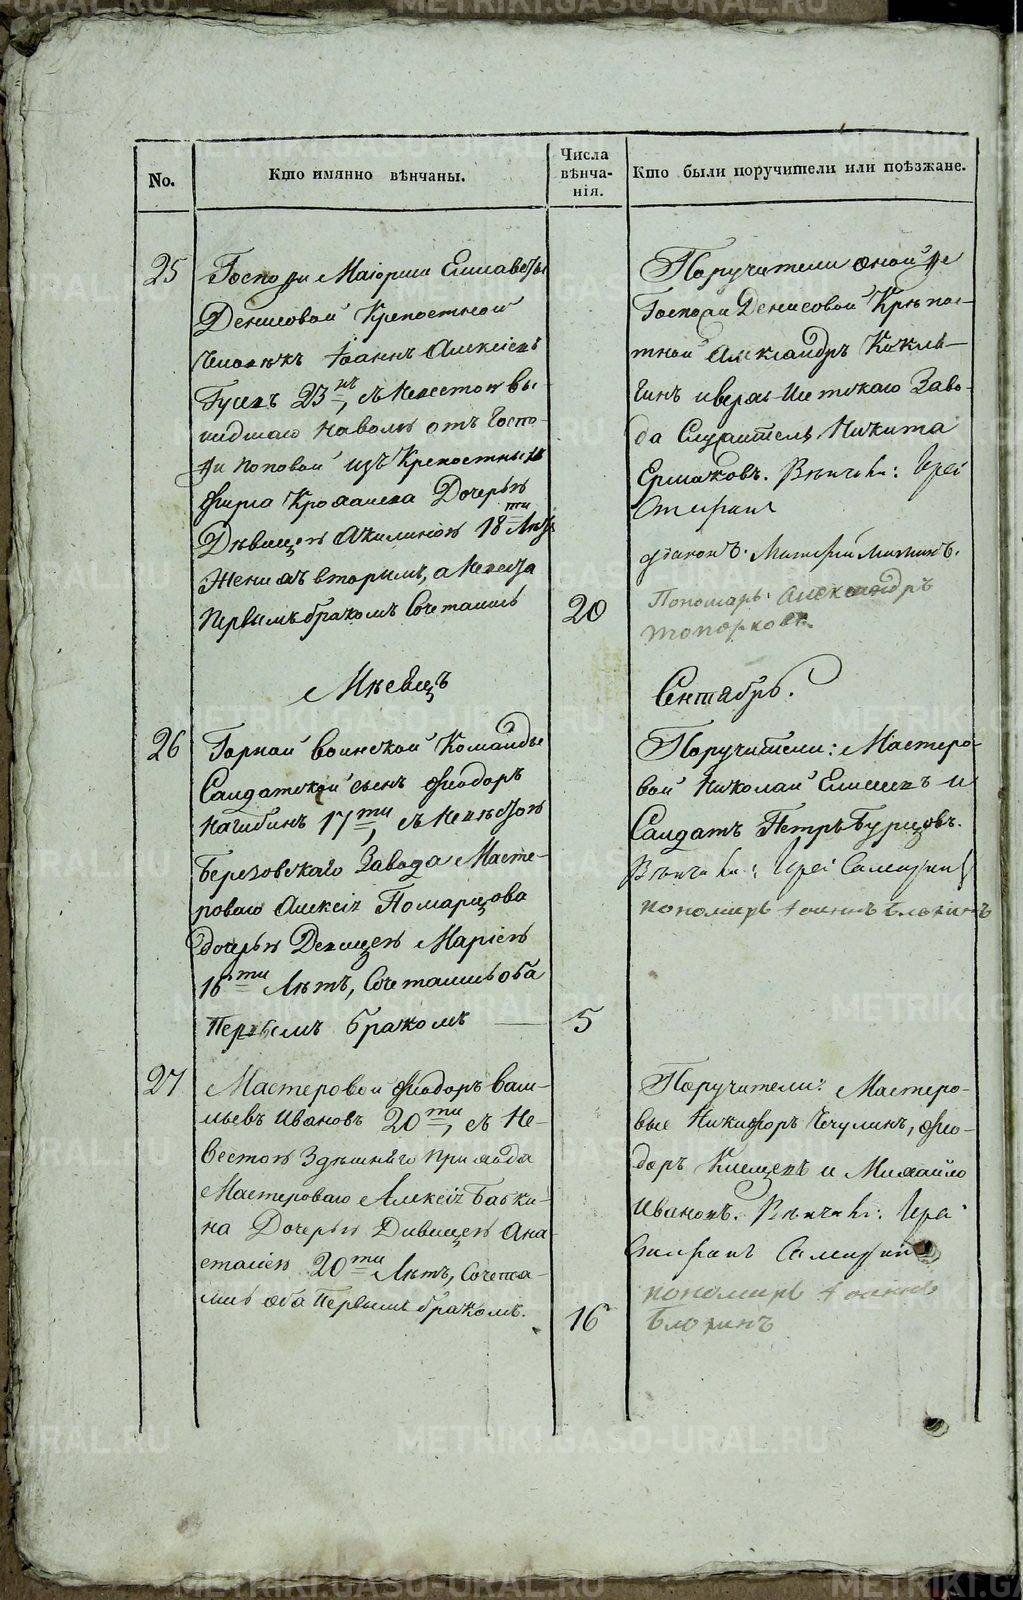 No.
Кто имянно вѣнчаны.
Числа
вѣнча-
нія.
Кто были поручители или поѣзжане.
25
Госпожи Маіорши Елисаветы
Денисовой Крепостной
Человѣкъ Іоаннъ Алексіевъ
Гусевъ 23, съ Невестою вы-
шедшаго на волю отъ Госпо-
жи Поповой изъ Крепостныхъ
Дочерью
Дѣвицею Акилиною 18ти Лѣтъ
Женихъ вторымъ, а Невеста
Первымъ бракомъ Сочетались
20
Поручители оной же
Госпожи Денисовой Крѣпос-
тной Александръ
Верхъ-Исетскаго Заво-
да Служитель Никита
Ермаковъ. Вѣнчали: Іерей
Стефанъ
діаконъ
Пономарь Александръ
Топорковъ
Мѣсецъ
Сентябрь.
26
Горной воинской Команды
Салдатской сынъ Феодоръ
Нагибинъ 17ти, съ Невѣстою
Березовскаго Завода Масте-
роваго Алексія Помарцова
дочерью Девицею Маріею
16ти Лѣтъ, Сочетались оба
Первымъ бракомъ
5
Поручители: Мастеро-
вой Николай и
Салдатъ Петръ Бурцовъ.
Вѣнчали: Іерей
пономарь Іоаннъ
27
Мастеровой Феодоръ Васи-
льевъ Ивановъ 20ти, съ Не-
вестою Здѣшняго прихода
Мастероваго Алексія Бабки-
на Дочерью Дивицею Ана-
стасіею 20ти Лѣтъ, Сочета-
лись оба Первымъ бракомъ.
16
Поручители: Мастеро-
вые Никифоръ Чечулинъ, Фео-
доръ Клещевъ и Михайло
Ивановъ. Вѣнчали: Іерей
Стефанъ
пономарь Іоаннъ
METRIKI.GASO-URAL.RU